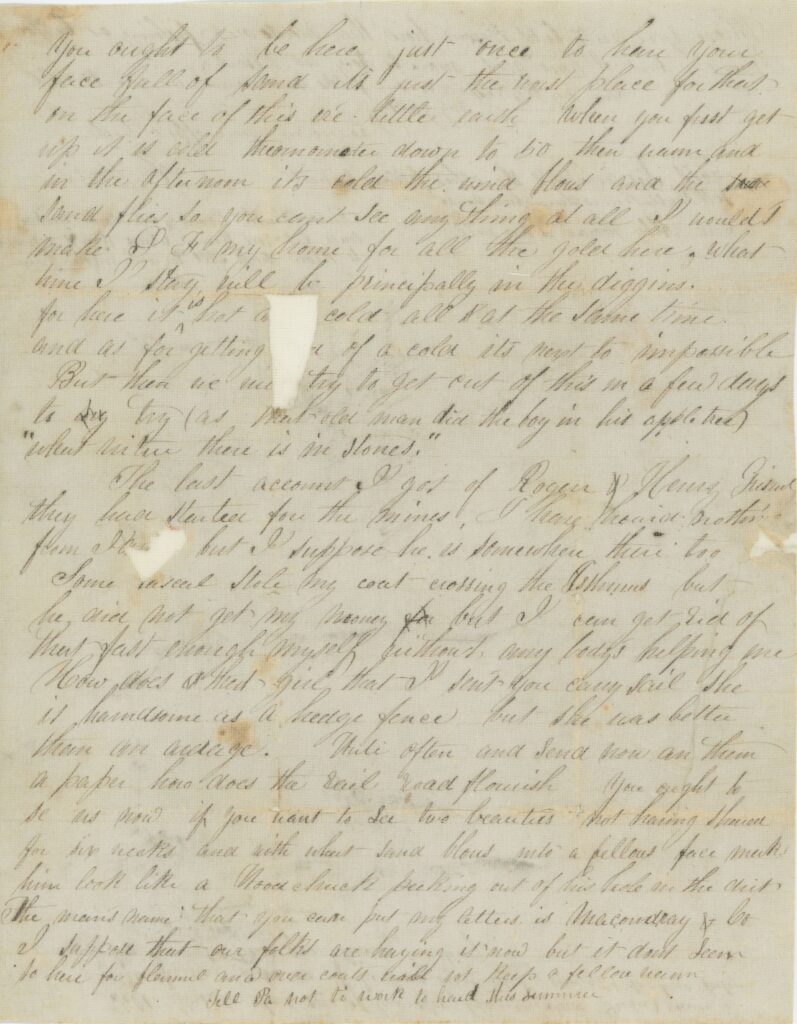 You ought to be here just once to have your
face full of sand its just the neist place for that
on the face of this ere little earth When you first get
up it is cold thermometer down to 50 then warm and
in the afternoon its cold the wind blows and the
sand flies so you cant see any thing at all I wouldt
make S F my home for all the gold here. what
time I stay will be principally in the diggins.
for here it is hot a cold all at the same time
and as for getting of a cold its next to impossible
But then we try to get out of this in a few days
to try (as that old man did the boy in his apple tree)
"what virtue there is in stones."
The last account I got of Roger & Henry
they had started for the mines. I have
from but I suppose he is somewhere there too
Some rascal stole my coat crossing the Isthmus but
he did not get my money but I can get rid of
that fast enough myself without any bodys helping me
How does that girl that I sent you carry sail she
is handsome as a hedge fence but she was better
than an average. Write often and send now an then
a paper how does the rail road flourish You ought to
se us now if you want to see two beauties not having shaved
for six weeks and with what sand blows into a fellows face make
him look like a Woodchuck peeking out of his hole in the dirt
The mans name that you can put my letters is Macondray & Co
I suppose that our folks are haying it now but it dont seem
so here for flannel and over coats will not keep a fellow warm
Tell Pa not to work to hard this summer